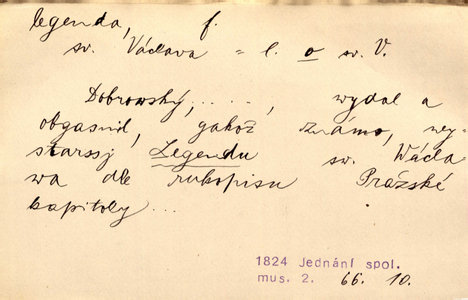 legenda, f.
sv. Václava = l. o sv. V.
Dobrowský, ....., wydal a
obgasnil, gakož známo, ney-
starssj Legendu sv. Wácla
wa dle rukopisu Pražské
kapitoly ...
1824 Jednání spol.
mus. 2. 66. 10.